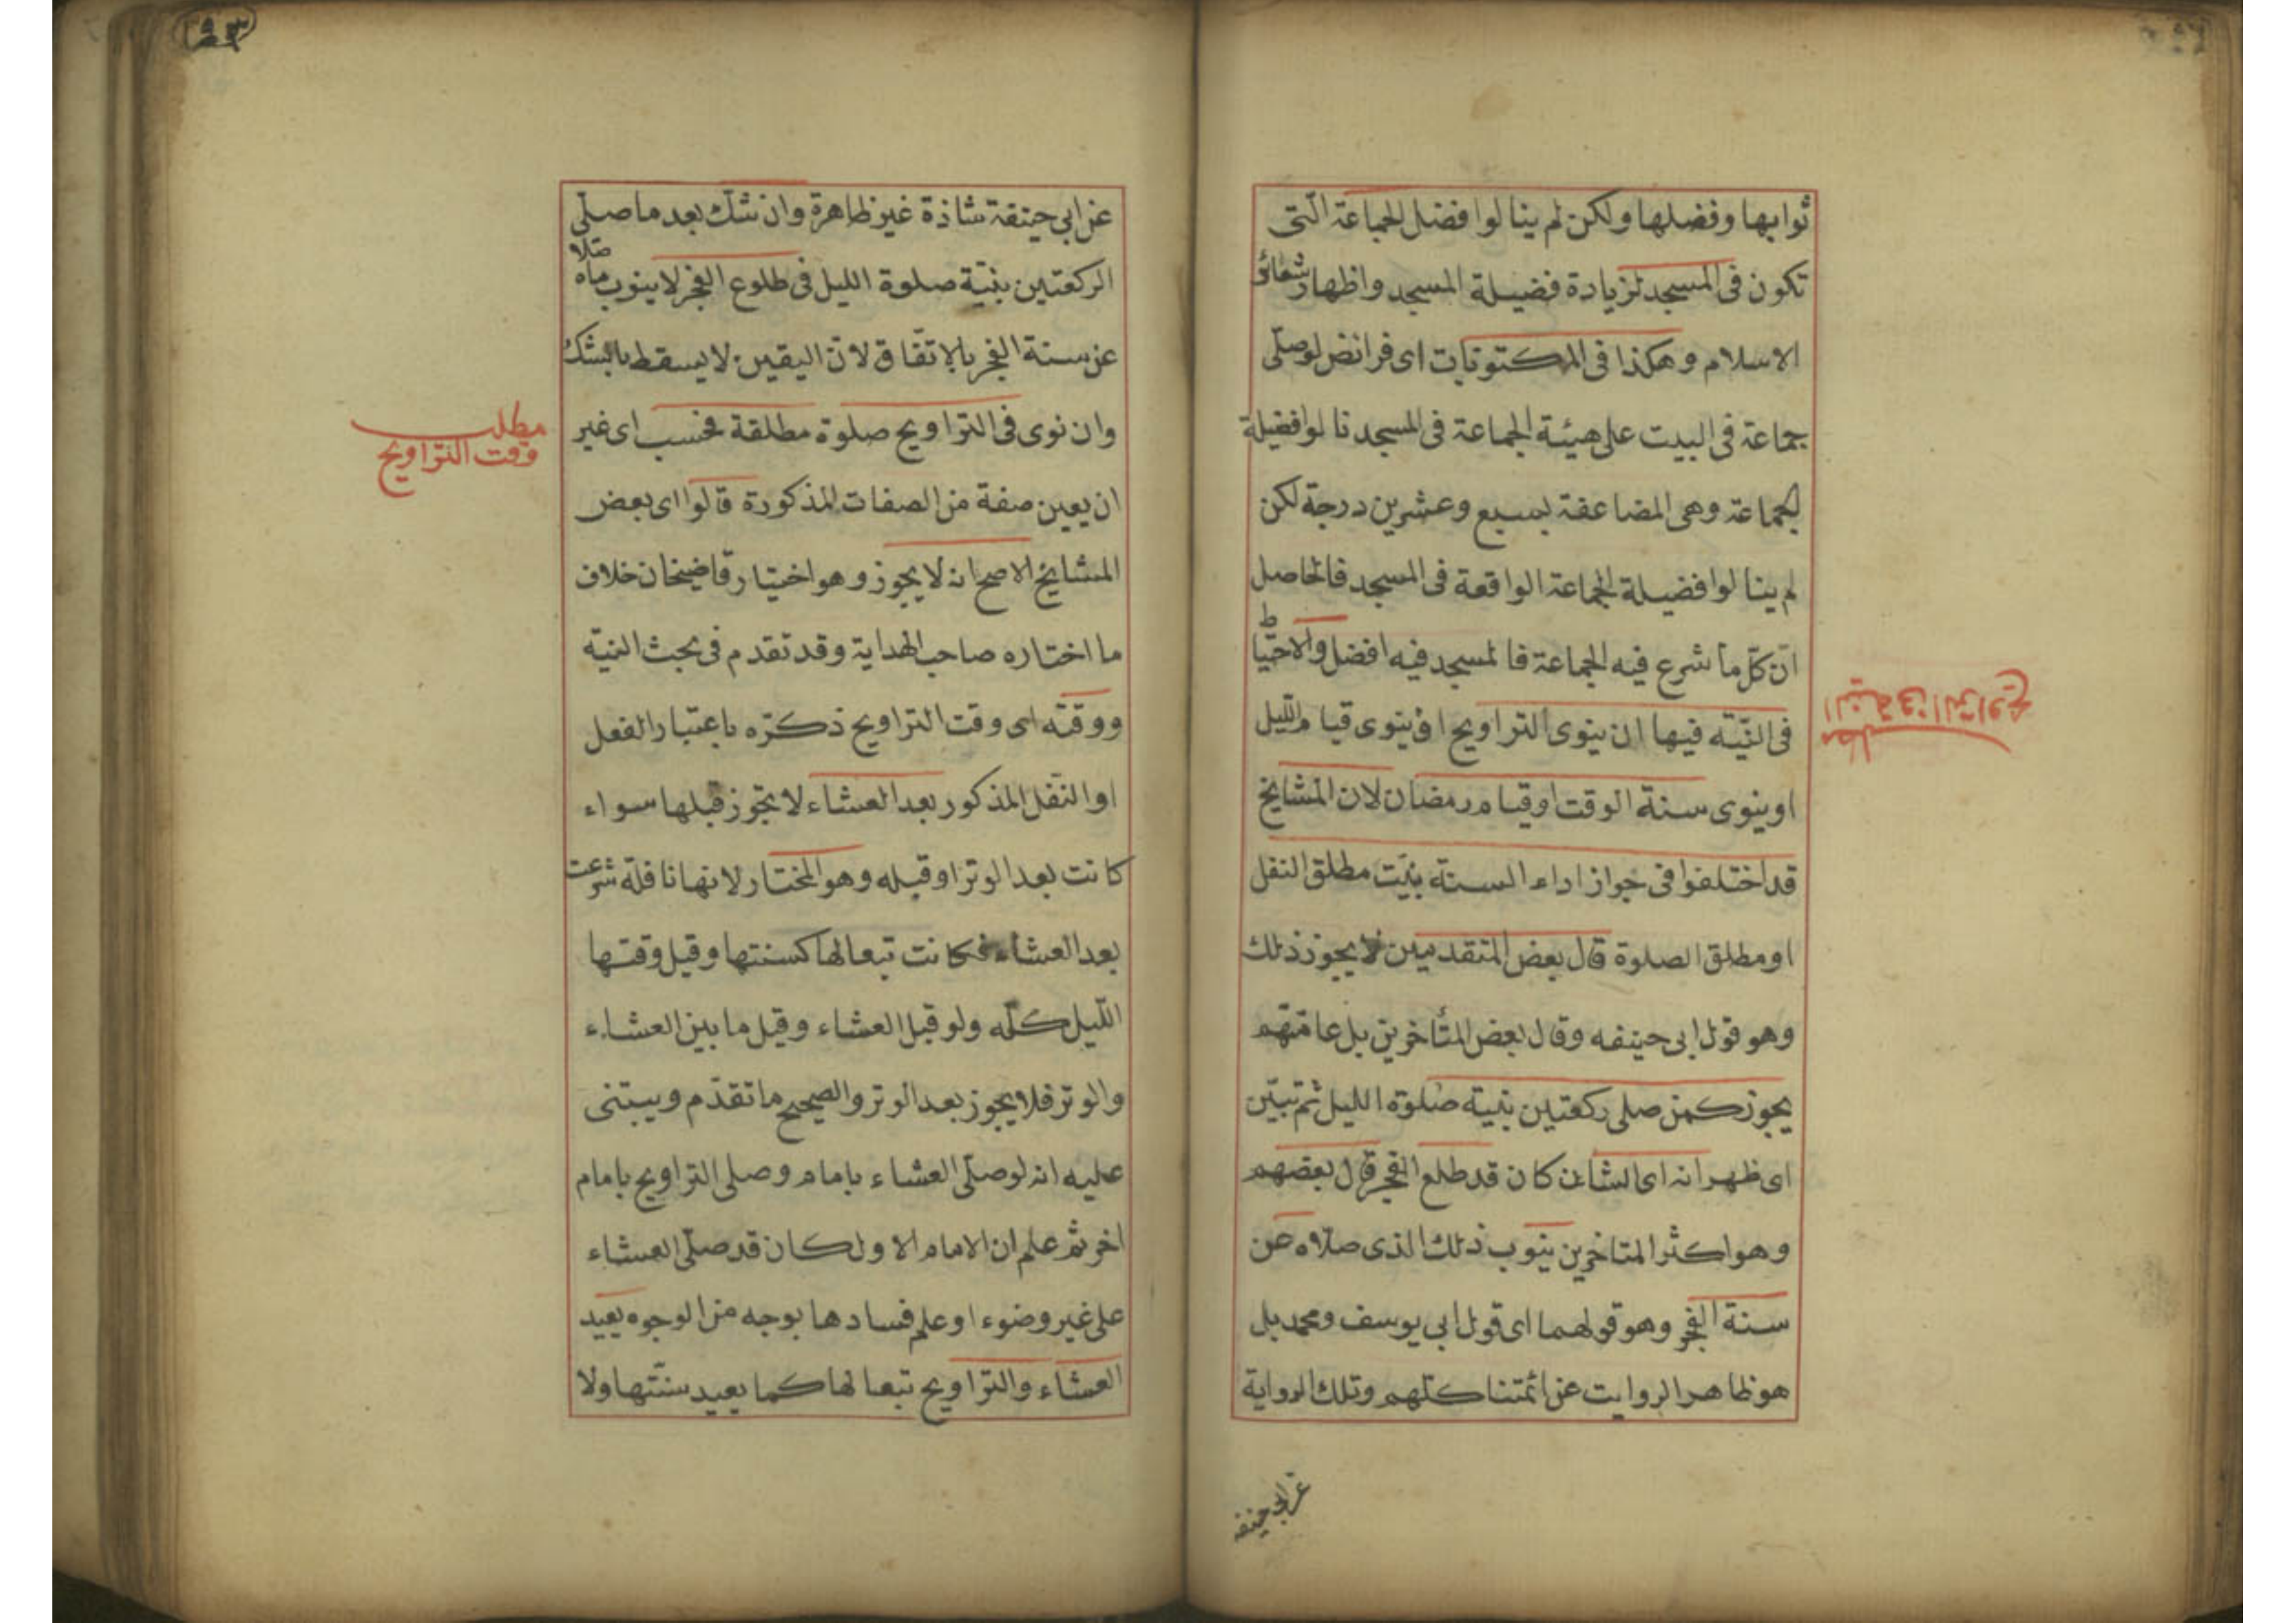 ثوابها وفضلها ولكن لم ينالوا فضل الجماعة التى
تكون فى المسجد لزيادة فضيلة المسجد واظهار شعائر
الاسلام وهكذا فى المكتوبات اى فرائض لو صلى
جماعة فى البيت على هيئة الجماعة فى المسجد نالوا فضيلة
الجماعة وهى المضاعفة بسبع وعشرين درجة لكن
لم ينالوا فضيلة الجماعة الواقعة فى المسجد فالحاصل
ان كل ما شرع فيه الجماعة فالمسجد فيه افضل والاحتياط
فى النيّة فيها ان ينوى التراويح او ينوى قيام الليل
او ينوى سنة الوقت او قيام رمضان لان المشايخ
قد اختلفوا فى جواز اداء السنة بنيت مطلق النفل
او مطلق الصلوة قال بعض المتقدمين لا يجوز ذلك
وهو قول ابى حنيفه وقال بعض المتأخرين بل عامتهم
يجوز كمن صلى ركعتين بنية صلوة الليل ثم تبيّن
اى ظهر انه اى الشان كان قد طلع الفجر قال بعضهم
وهو اكثر المتاخرين ينوب ذلك الذى صلاه عن
سنة الفجر وهو قولهما اى قول ابى يوسف ومحمد بل
هو ظاهر الروايت عن ائمتنا كلهم وتلك الرواية
عن ابى حنيفه
مطلب
النية فى التراويح
عن ابى حنيفة شاذة غير ظاهرة وان شك بعد ما صلّى
الركعتين بنيّة صلوة الليل فى طلوع الفجر لا ينوب ما صلاه
عن سنة الفجر بالاتفاق لان اليقين لا يسقط بالشك
وان نوى فى التراويح صلوة مطلقة فحسب اى غير
ان يعين صفة من الصفات المذكورة قالوا اى بعض
المشايخ الاصح انه لا يجوز وهو اختيار قاضيخان خلاف
ما اختاره صاحب الهداية وقد تقدم فى بحث النيّة
ووقته اى وقت التراويح ذكّره باعتبار الفعل
او النفل المذكور بعد العشاء لا يجوز قبلها سواء
كانت بعد الوتر او قبله وهو المختار لانها نافلة شرعت
بعد العشاء فكانت تبعا لها كسنتها وقيل وقتها
الليل كلّه ولو قبل العشاء وقيل ما بين العشاء
والوتر فلا يجوز بعد الوتر والصحيح ما تقدّم ويبتنى
عليه انه لو صلّى العشاء بامام وصلى التراويح بامام
اخر ثم علم ان الامام الاول كان قد صلّى العشاء
على غير وضوء او علم فسادها بوجه من الوجوه يعيد
العشاء والتراويح تبعا لها كما يعيد سنّتها ولا
مطلب
وقت التراويح